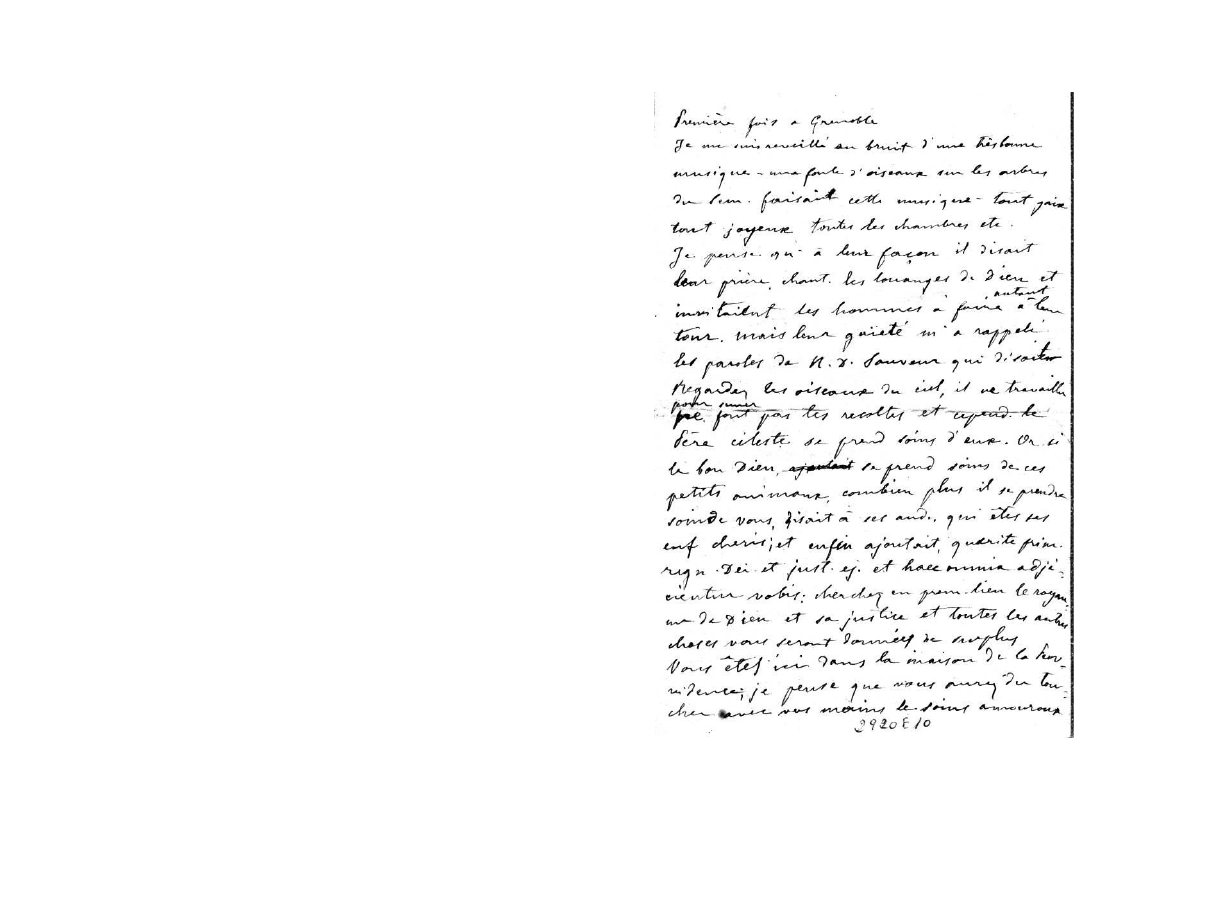 Première fois a Grenoble
Je me suis reveillé au bruit d'une très bonne
musique - une foule d'oiseaux sur les arbres
du Sem. faisait cette musique - tout gaix
tout joyeux toutes les chambres etc.
Je pense qu' à leur façon il disait
leur prière, chant. les louanges de Dieu et
invitaient les hommes à faire autant à leur
tour. Mais leur gaieté m'a rappelé
les paroles de N. D. Sauveur qui disait
Regardez les oiseaux du ciel, il ne travaille
pour
font pas les recoltes et cepend. le
Père celeste se prend soins d'eux. Or si
le bon Dieu, ajoutait se prend soins de ces
petits animaux, combien plus il se prendra
soin de vous, disait à ses aud., qui êtes ses
enf cheris; et enfin ajoutait, querite prim.
regn. Dei et just. ej. et haec omnia adji-
cientur vobis: cherchez en prem. lieu le royau-
me de Dieu et sa justice et toutes les autres
choses vous seront données de surplus
Vous êtes ici dans la maison de la Prov-
vidence; je pense que vous aurez du tou-
cher avec vos mains le soins amoureux
2920 E 10